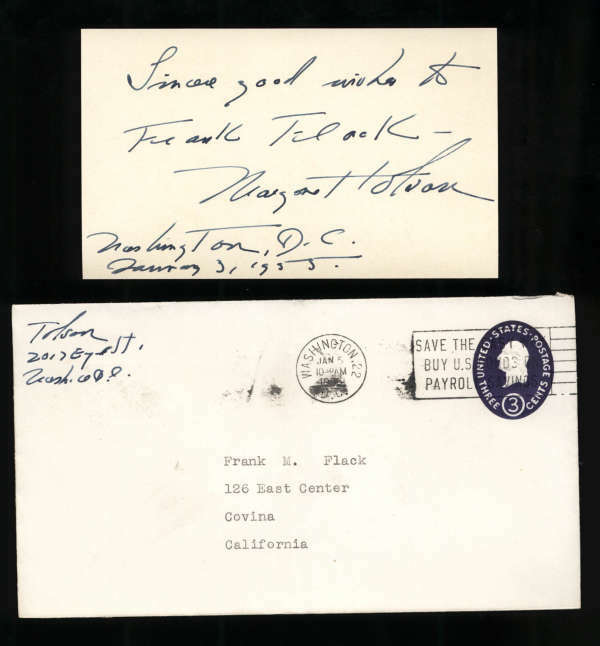 Sincere good wishes to
Frank Flack —
Margaret Tolson
Washington, D.C.
January 3, 1953.
Tolson
2017 Eye St.,
Wash. D.C.
WASHINGTON, 22
JAN 5
10 AM
D.C.
SAVE THE
BUY U.S.
PAYROL SAVING
UNITED·STATES·POSTAGE
THREE 3 CENTS
Frank M. Flack
126 East Center
Covina
California